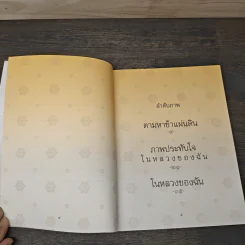 ลำดับภาพ
ตามหาข้าแผ่นดิน
ภาพประทับใจ
ในหลวงของฉัน
ในหลวงของฉัน